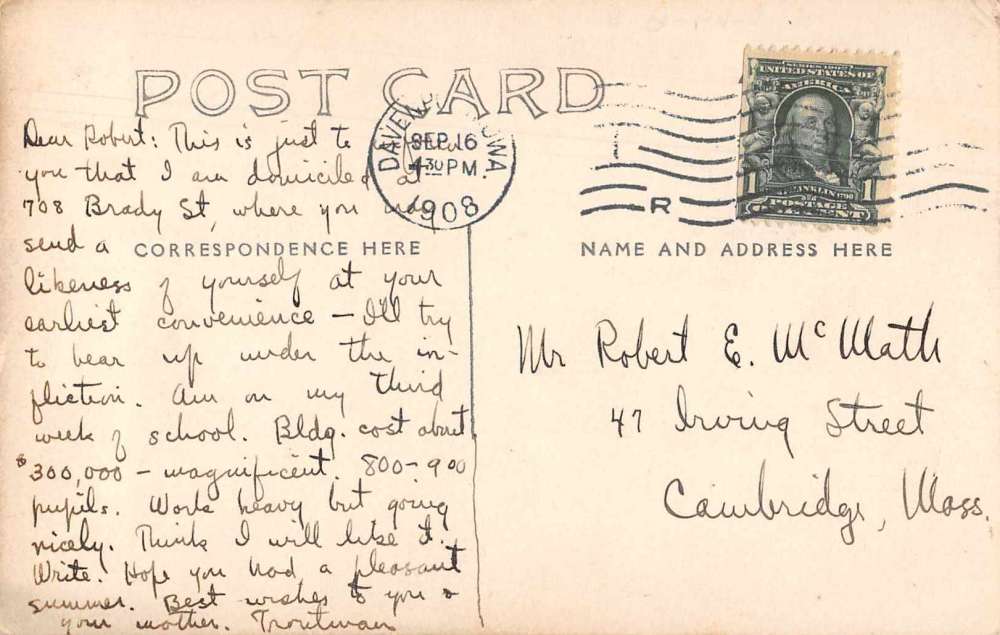 POST CARD
Dear Robert: This is just to
you that I am domiciled at
708 Brady St, where you may
send a
likeness of yourself at your
earliest convenience – I'll try
to bear up under the in-
fliction. Am on my third
week of school. Bldg. cost about
$300,000 – magnificent. 800–900
pupils. Work heavy but going
nicely. Think I will like it.
Write. Hope you had a pleasant
summer. Best wishes to you &
your mother. Troutman
CORRESPONDENCE HERE
DAVEN IOWA
SEP 16
4-30 PM.
1908
R
SERIES 1902
UNITED STATES OF
AMERICA
FRANKLIN 1790
1 1
POSTAGE
CENT
NAME AND ADDRESS HERE
Mr Robert E. McMath
47 Irving Street
Cambridge, Mass.